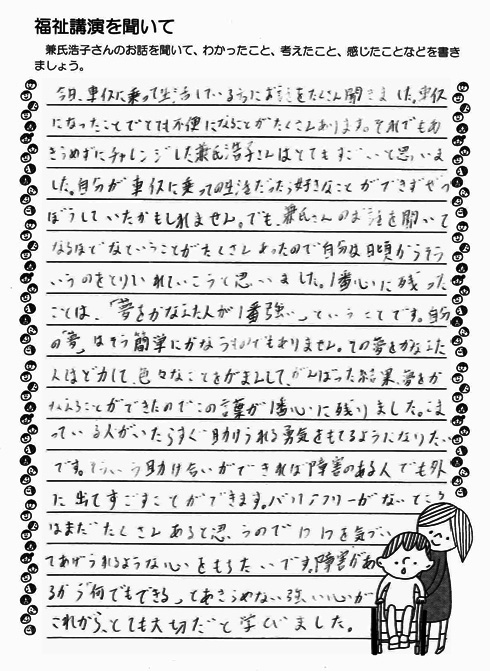 福祉講演を聞いて
兼氏浩子さんのお話を聞いて、わかったこと、考えたこと、感じたことなどを書き
ましょう。
今日、車イスに乗って生活している方にお話をたくさん聞きました。車イス
になったことでとても不便になることがたくさんあります。それでもあ
きらめずにチャレンジした兼氏浩子さんはとてもすごいと思いま
した。自分が車イスに乗っての生活だったら好きなことができずぜつ
ぼうしていたかもしれません。でも、兼氏さんのお話を聞いて
なるほどなということがたくさんあったので自分も日頃からそう
いうのをとりいれていこうと思いました。1番心に残った
ことは、「夢をかなえた人が1番強い」ということです。自分
の「夢」はそう簡単にかなうものでもありません。その夢をかなえた
人はど力して、色々なことをがまんして、がんばった結果、夢をか
なえることができたのでこの言葉が1番心に残りました。こま
っている人がいたらすぐ助けられる勇気をもてるようになりたい
です。そういう助け合いができれば障害のある人でも外
に出てすごすことができます。バリアフリーがないところ
はまだたくさんあると思うので
を気づい
てあげられるような心をもちたいです。障害があ
るから「何でもできる」とあきらめない強い心が
これから、とても大切だと学びました。